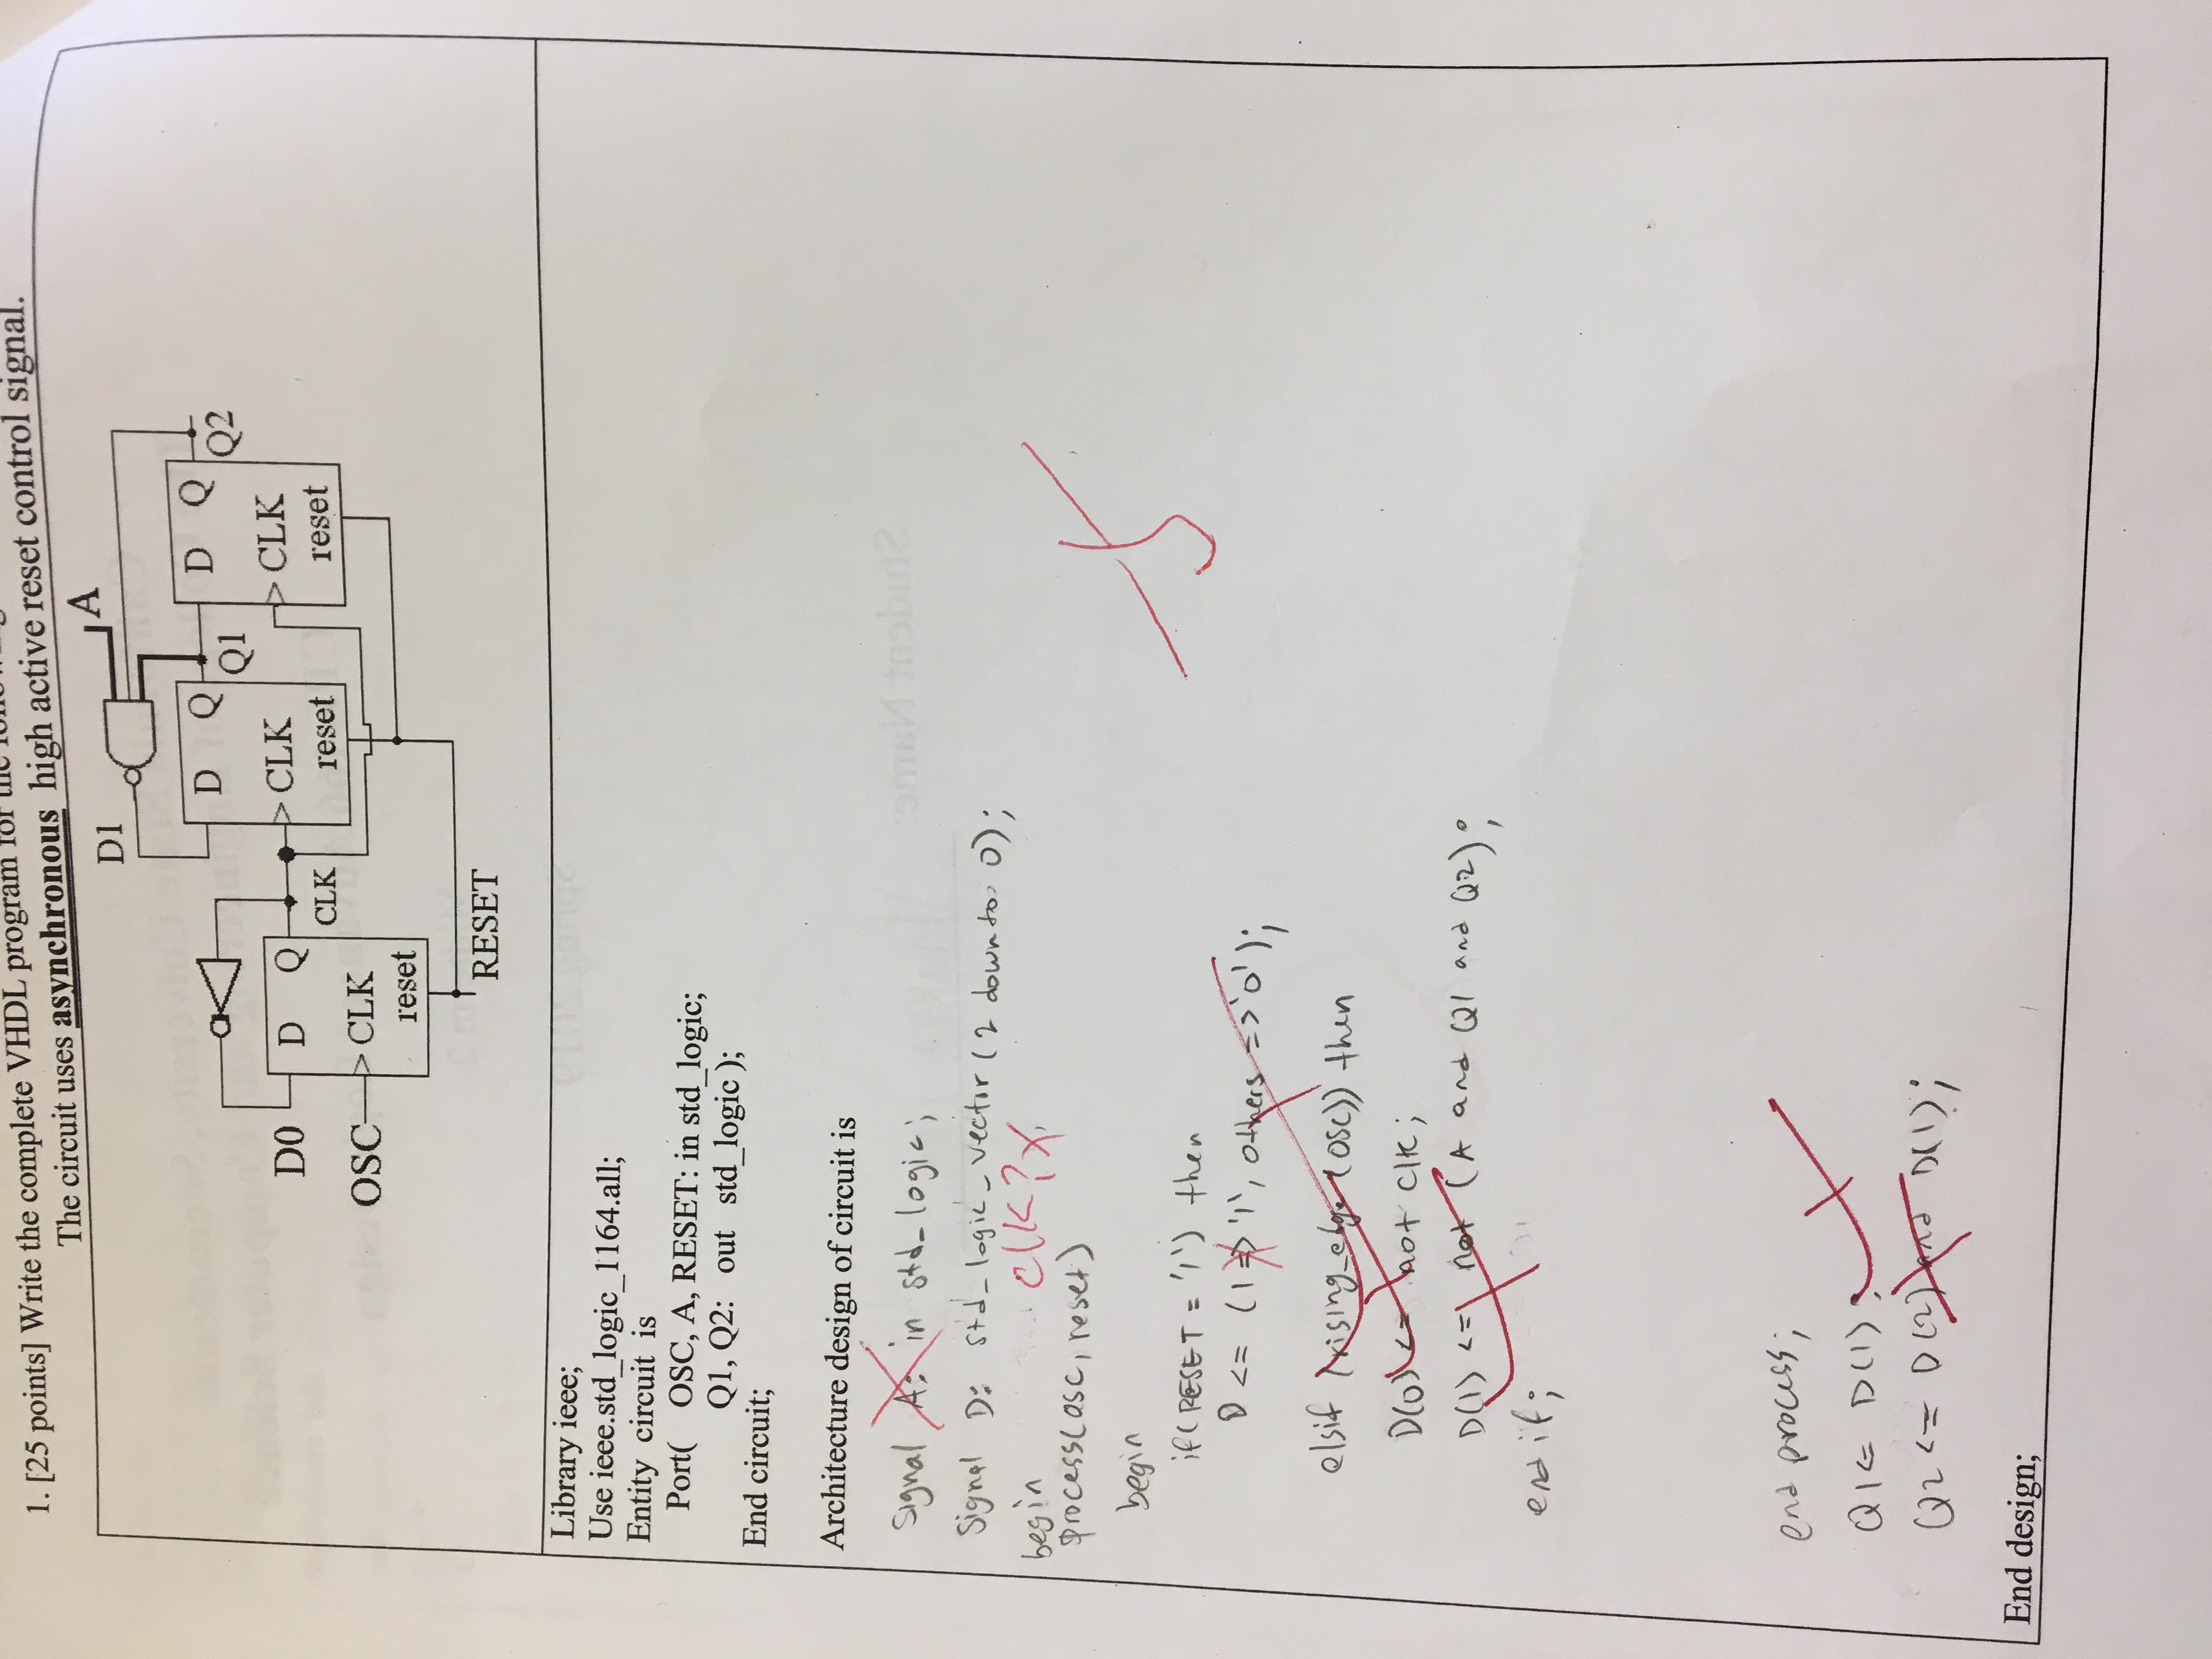 1. [25 points] Write the complete VHDL program for the
The circuit uses asynchronous high active reset control signal.
A
D1
D Q
Q1
D Q
Q2
CLK
reset
CLK
reset
D0
D Q
CLK
OSC
CLK
reset
RESET
Library ieee;
Use ieee.std_logic_1164.all;
Entity circuit is
Port( OSC, A, RESET: in std_logic;
Q1, Q2: out std_logic );
End circuit;
Architecture design of circuit is
Signal A: in std_logic;
Signal D: std_logic_vector (2 down to 0);
clk? X
begin
process(osc, reset)
begin
if(RESET = '1') then
D <= (1 => '1', others => '0');
elsif (rising_edge (osc)) then
D(0) <= not clk;
D(1) <= not (A and Q1 and Q2);
end if;
5
end process;
Q1 <= D(1);
Q2 <= D(2) and D(1);
End design;